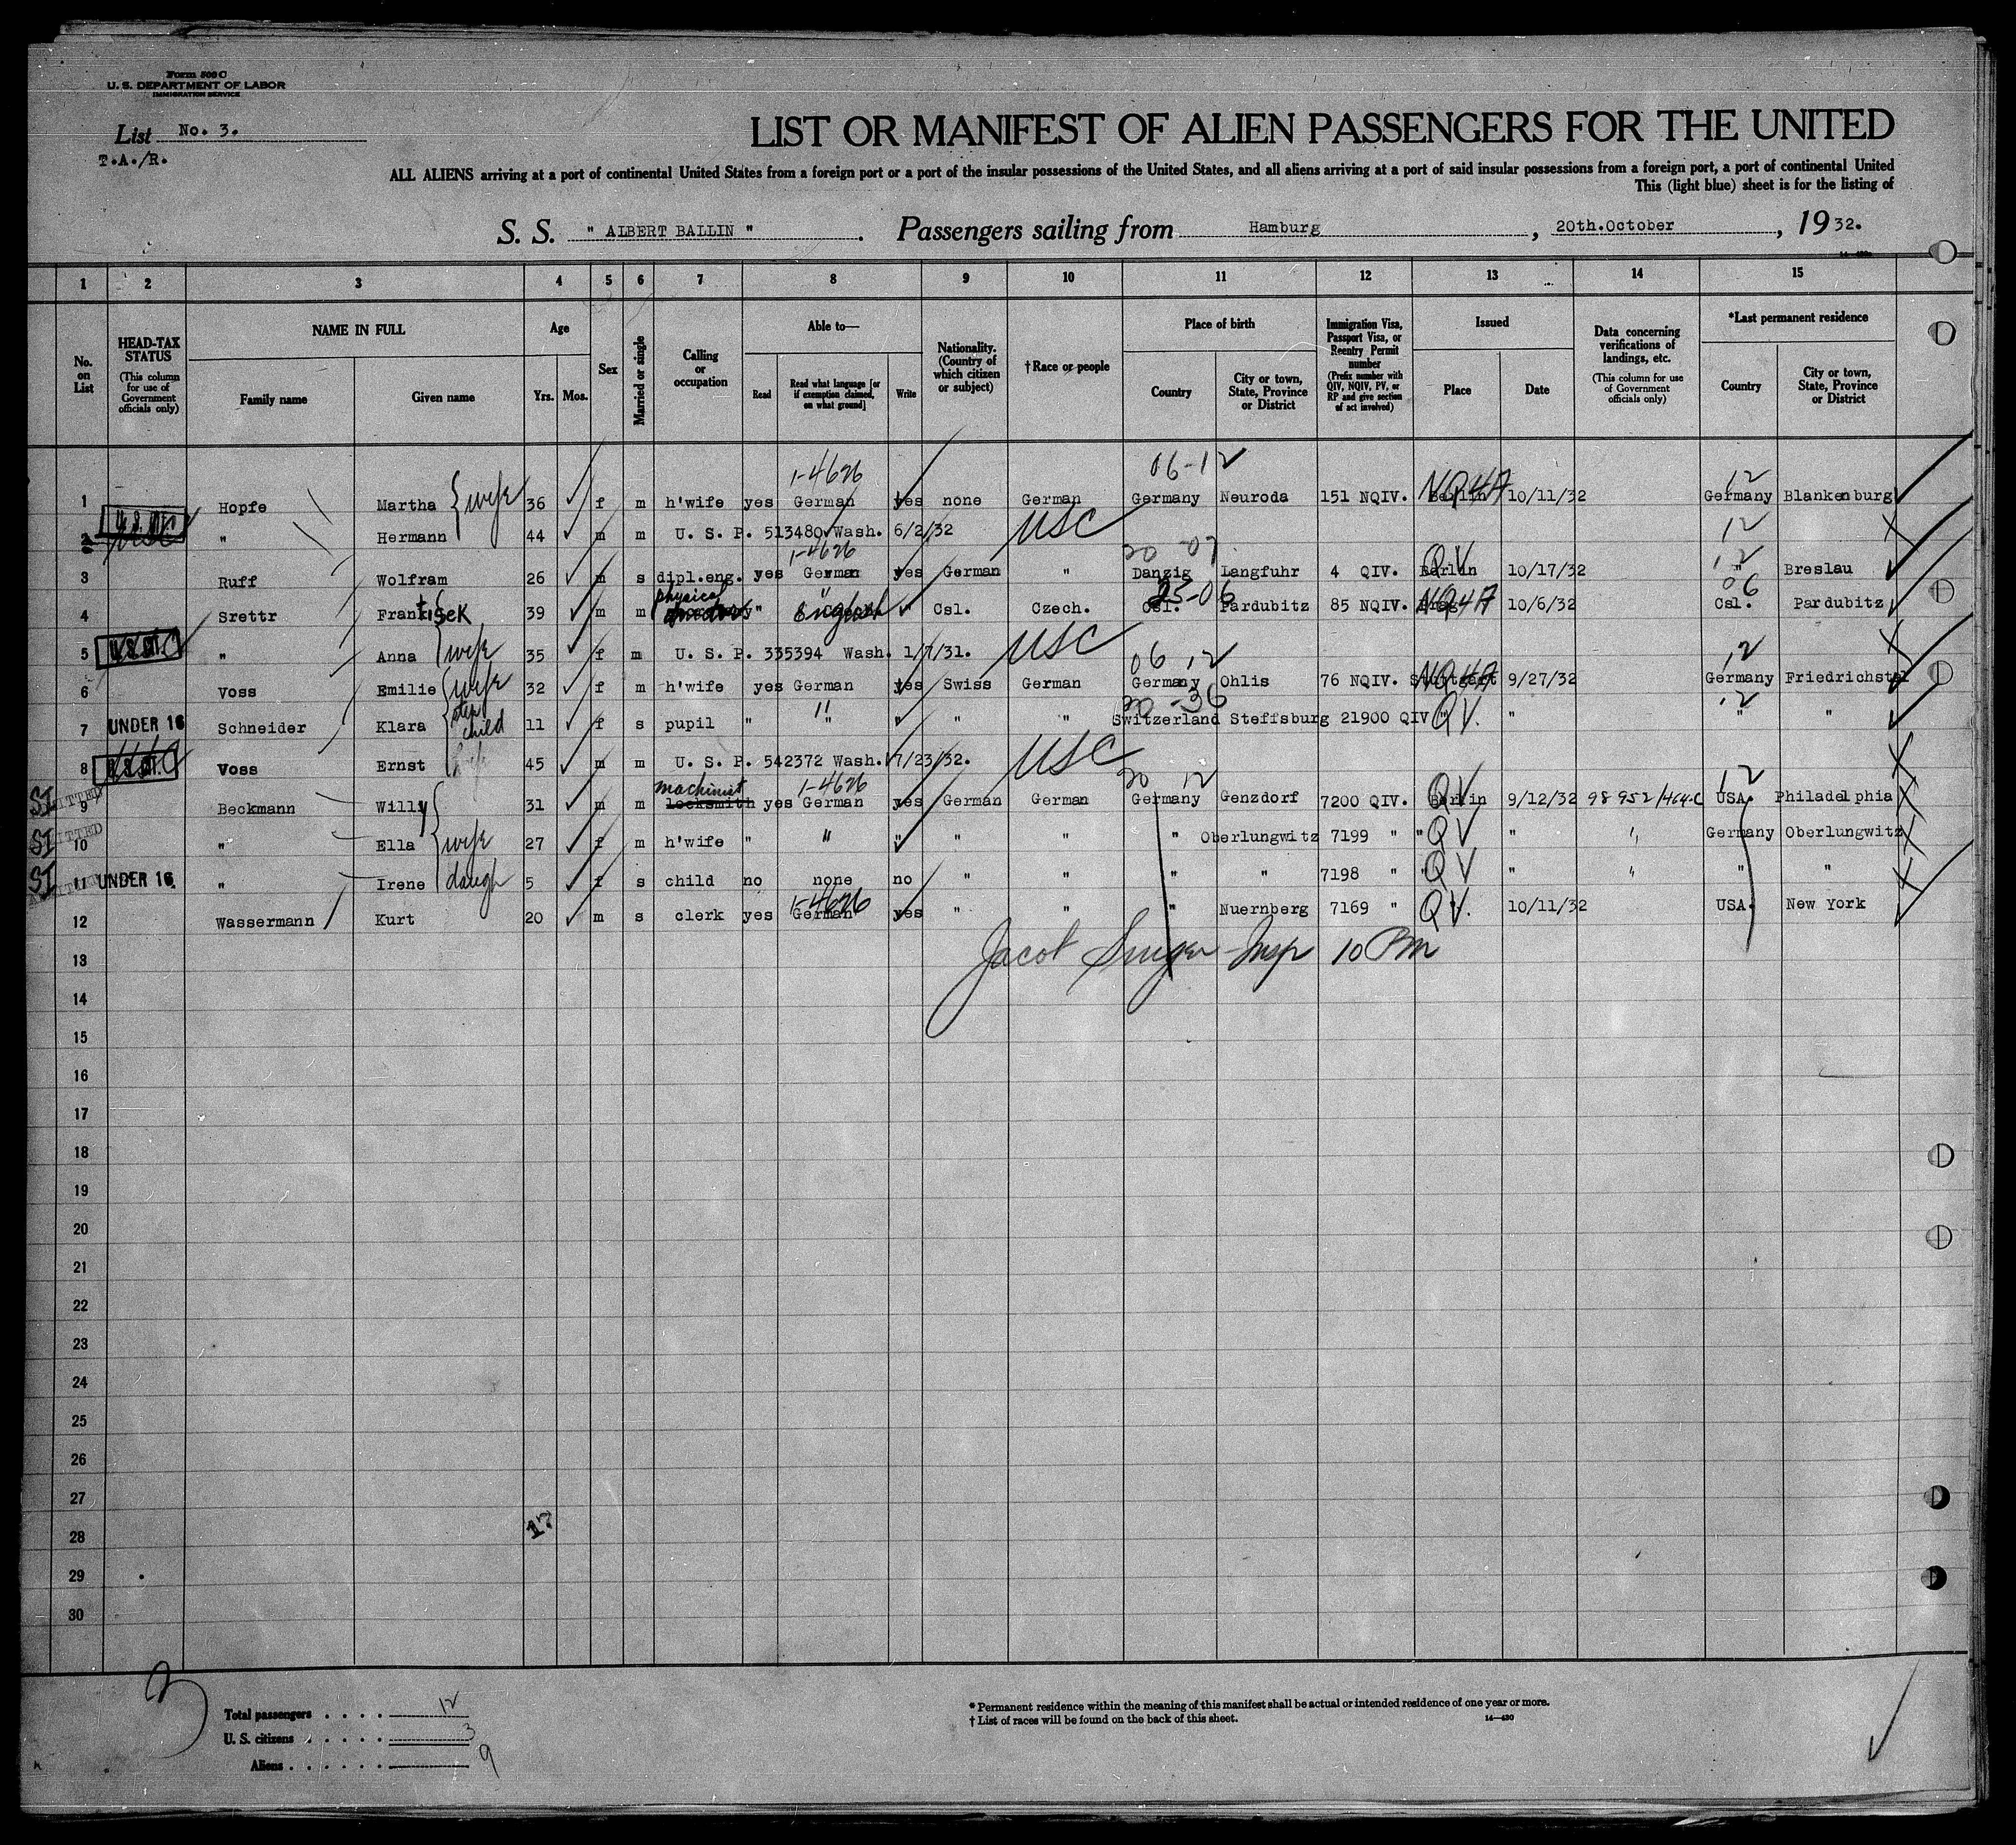 Form 500 C
U. S. DEPARTMENT OF LABOR
IMMIGRATION SERVICE
List No. 3.
T.A./R.
LIST OR MANIFEST OF ALIEN PASSENGERS FOR THE UNITED
ALL ALIENS arriving at a port of continental United States from a foreign port or a port of the insular possessions of the United States, and all aliens arriving at a port of said insular possessions from a foreign port, a port of continental United
This (light blue) sheet is for the listing of
S. S. " ALBERT BALLIN " . Passengers sailing from Hamburg , 20th.October , 1932.
1 2 3 4 5 6 7 8 9 10 11 12 13 14 15
No. on List
HEAD-TAX STATUS (This column for use of Government officials only)
NAME IN FULL
Family name
Given name
Age
Yrs. Mos.
Sex
Married or single
Calling or occupation
Able to—
Read
Read what language [or if exemption claimed, on what ground]
Write
Nationality. (Country of which citizen or subject)
†Race or people
Place of birth
Country
City or town, State, Province or District
Immigration Visa, Passport Visa, or Reentry Permit number (Prefix number with QIV, NQIV, PV, or RP and give section of act involved)
Issued
Place
Date
Data concerning verifications of landings, etc. (This column for use of Government officials only)
*Last permanent residence
Country
City or town, State, Province or District
1-4626 06-12 12
1 Hopfe Martha wife 36 f m h'wife yes German yes none German Germany Neuroda 151 NQIV. Berlin NQ4A 10/11/32 Germany Blankenburg
2 " Hermann 44 m m U. S. P. 513480 Wash. 6/2/32 USC 12
1-4626 12
3 Ruff Wolfram 26 m s dipl.eng. yes German yes German " Danzig Langfuhr 4 QIV. Berlin QV 10/17/32 " Breslau
physical 25-06 06
4 Srettr Frantisek 39 m m " English " Csl. Czech. Csl. Pardubitz 85 NQIV. Prag NQ4A 10/6/32 Csl. Pardubitz
5 " Anna wife 35 f m U. S. P. 335394 Wash. 1/7/31. USC
06 12 12
6 Voss Emilie wife 32 f m h'wife yes German yes Swiss German Germany Ohlis 76 NQIV. Stuttgart NQ4A 9/27/32 Germany Friedrichstal
20-36 12
7 UNDER 16 Schneider Klara step child 11 f s pupil " " " " " Switzerland Steffsburg 21900 QIV " QV. " " "
8 Voss Ernst 45 m m U. S. P. 542372 Wash. 7/23/32. USC
machinist 1-4626 20 12 12
SI 9 Beckmann Willy 31 m m locksmith yes German yes German German Germany Genzdorf 7200 QIV. Berlin QV 9/12/32 98952/464-C USA. Philadelphia
SI 10 " Ella wife 27 f m h'wife " " " " " " Oberlungwitz 7199 " " QV " " Germany Oberlungwitz
SI 11 UNDER 16 " Irene daugh 5 f s child no none no " " " " 7198 " " QV " " " "
1-4626
12 Wassermann Kurt 20 m s clerk yes German yes " " " Nuernberg 7169 " QV. 10/11/32 USA. New York
Jacob Singer Insp 10 Pm
13
14
15
16
17
18
19
20
21
22
23
24
25
26
27
28
17
29
30
Total passengers . . . . 12
U. S. citizens . . . . . 3
Aliens . . . . . . 9
* Permanent residence within the meaning of this manifest shall be actual or intended residence of one year or more.
† List of races will be found on the back of this sheet. 14—430